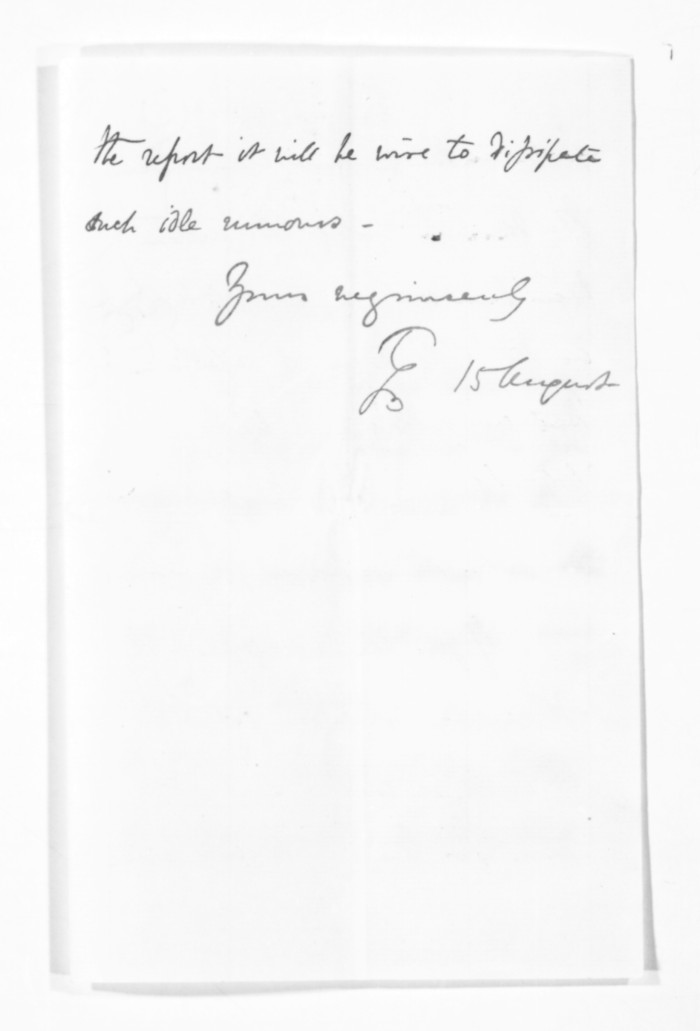 the report it will be wise to dissipate
such idle rumours -
Yours
15 August